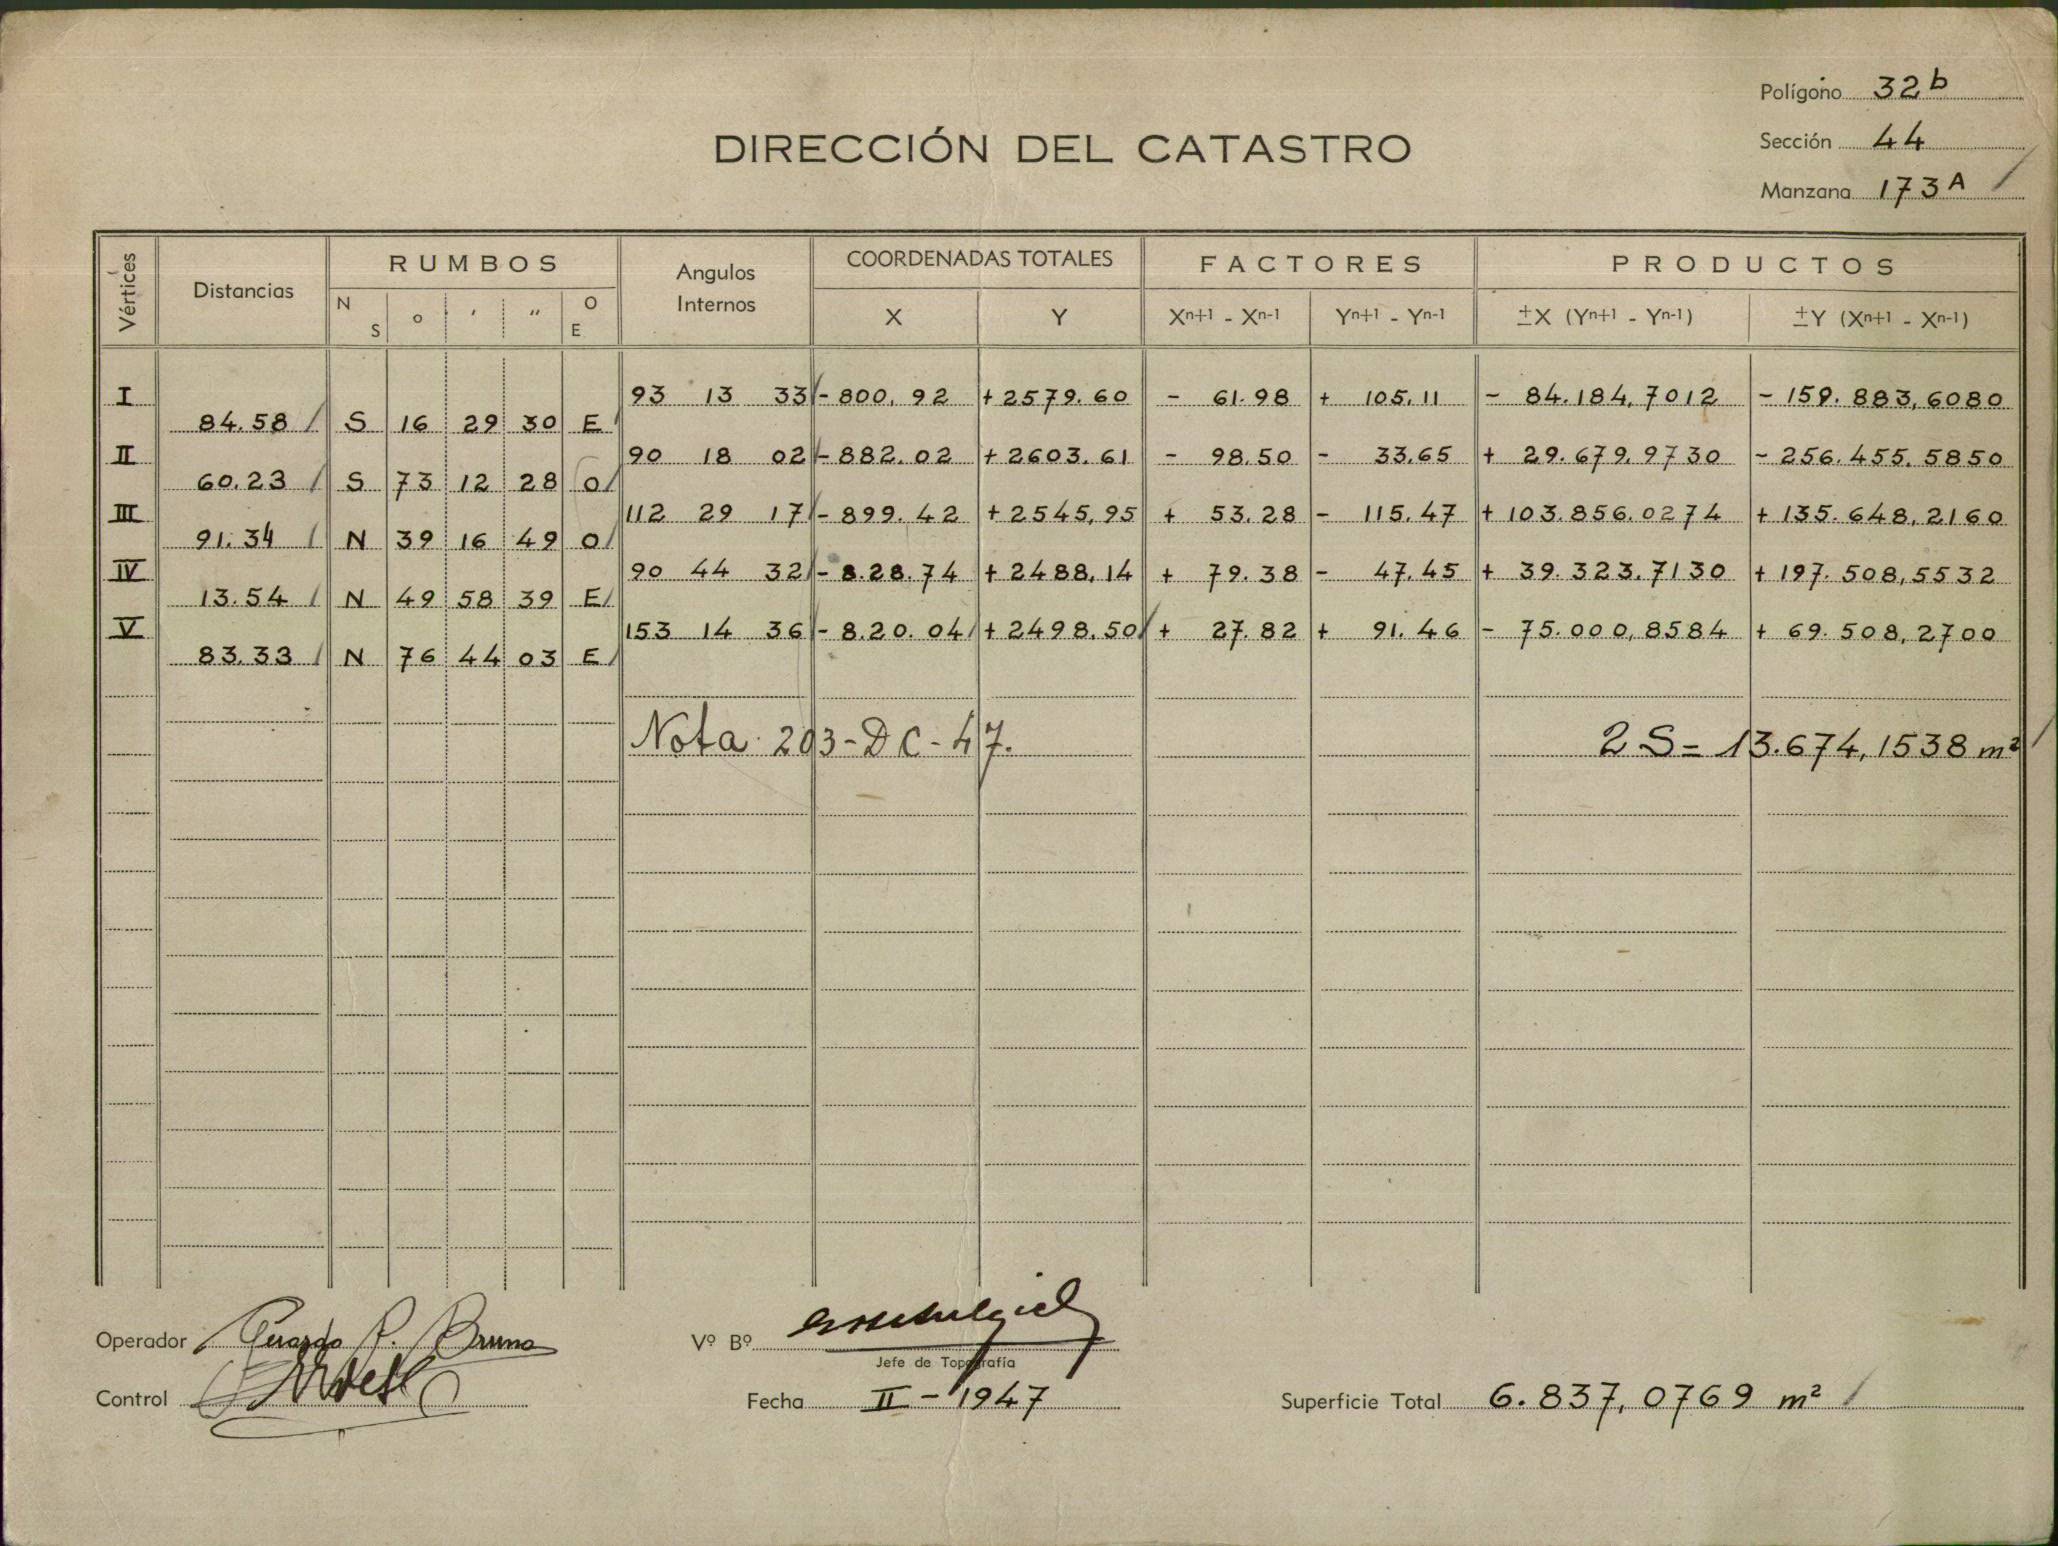 Polígono 32 b
Sección 44
Manzana 173 A
DIRECCIÓN DEL CATASTRO
Vértices Distancias RUMBOS Angulos Internos COORDENADAS TOTALES FACTORES PRODUCTOS
N S o ' " O E X Y Xn+1 - Xn-1 Yn+1 - Yn-1 ±X (Yn+1 - Yn-1) ±Y (Xn+1 - Xn-1)
I 93 13 33 - 800,92 + 2579.60 - 61.98 + 105,11 - 84.184,7012 - 159.883,6080
84.58 S 16 29 30 E
II 90 18 02 - 882.02 + 2603.61 - 98.50 - 33.65 + 29.679,9730 - 256.455,5850
60.23 S 73 12 28 O
III 112 29 17 - 899.42 + 2545,95 + 53.28 - 115.47 + 103.856.0274 + 135.648,2160
91.34 N 39 16 49 O
IV 90 44 32 - 8.28.74 + 2488,14 + 79.38 - 47.45 + 39.323.7130 + 197.508,5532
13.54 N 49 58 39 E
V 153 14 36 - 8.20.04 + 2498.50 + 27.82 + 91.46 - 75.000,8584 + 69.508,2700
83.33 N 76 44 03 E
Nota 203-DC-47. 2 S = 13.674,1538 m²
Operador P. Bruno Vº Bº
Jefe de Topografía
Control Fecha II - 1947 Superficie Total 6.837,0769 m²